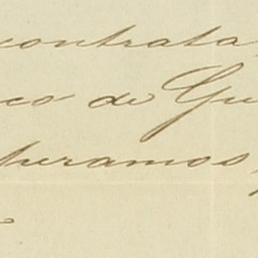 contrata
co de Gu
peramos,